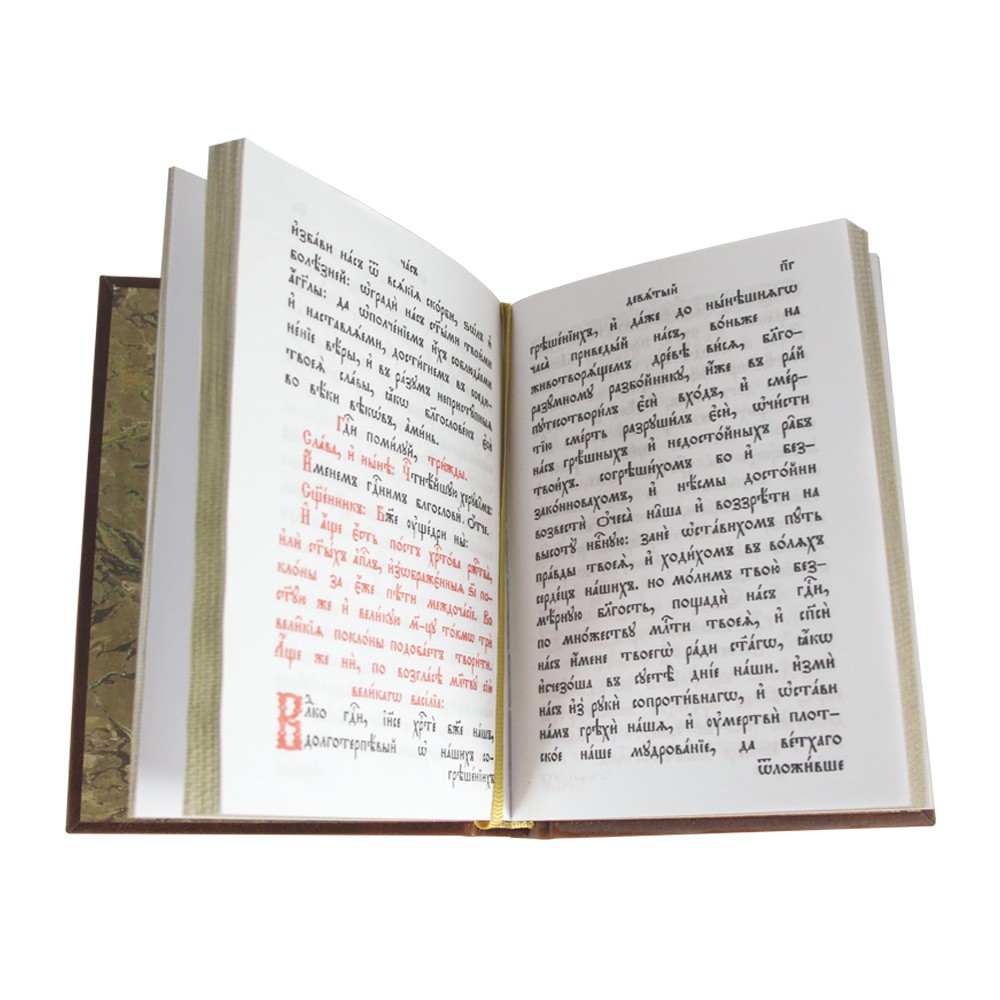 часъ
и҆зба́ви на́съ ѿ всѧ́кїѧ ско́рби, ѕѡ́лъ и҆
болѣ́зней: ѡ҆гради́ на́съ ст҃ы́ми твои́ми
а҆́гг҃лы: да ѡ҆полче́нїемъ и҆́хъ соблюда́еми
и҆ наставлѧ́еми, дости́гнемъ въ соеди-
не́нїе вѣ́ры, и҆ въ ра́зумъ непристу́пныѧ
твоеѧ̀ сла́вы, ꙗ҆́кѡ бл҃гослове́нъ є҆сѝ
во вѣ́ки вѣкѡ́въ, а҆ми́нь.
Гдⷭ҇и поми́луй, три́жды.
Сла́ва, и҆ ны́нѣ: Чтⷭ҇нѣ́йшую херуві̑мъ:
И҆́менемъ гдⷭ҇нимъ бл҃гословѝ, ѻ҆́тче.
Сщ҃е́нникъ: Бж҃е ᲂу҆ще́дри ны̀:
И҆ а҆́ще є҆́сть по́стъ хрⷭ҇то́ва ржⷭ҇тва̀,
и҆лѝ ст҃ы́хъ а҆пⷭ҇лъ, и҆з̾ѡбраже́нныѧ ѕ҃і по-
кло́ны за є҆́же пѣ́ти междоча́сїе. Во
ст҃у́ю же и҆ вели́кую м҃-цу то́кмѡ трѝ
вели̑кїѧ покло́ны подоба́етъ твори́ти.
А҆́ще же нѝ, по возгла́сѣ мл҃тву сїю̀
вели́кагѡ васі́лїа:
Влⷣко гдⷭ҇и, і҆и҃се хрⷭ҇тѐ бж҃е на́шъ,
долготерпѣ́вый ѡ҆ на́шихъ со-
грѣше́нїихъ
девѧ́тый п҃г
грѣше́нїихъ, и҆ да́же до ны́нѣшнѧгѡ
часа̀ приведы́й на́съ, во́ньже на
животворѧ́щемъ дре́вѣ висѧ̀, бл҃го-
разу́мному разбо́йнику, и҆́же въ ра́й
путесотвори́лъ є҆сѝ вхо́дъ, и҆ сме́р-
тїю сме́рть разруши́лъ є҆сѝ, ѡ҆чи́сти
на́съ грѣ́шныхъ и҆ недосто́йныхъ ра̑бъ
твои́хъ. согрѣши́хомъ бо и҆ без-
зако́нновахомъ, и҆ нѣ́смы досто́йни
возвестѝ ѻ҆чеса̀ на̑ша и҆ воззрѣ́ти на
высоту̀ нбⷭ҇ную: занѐ ѡ҆ста́вихомъ пу́ть
пра́вды твоеѧ̀, и҆ ходи́хомъ въ во́лѧхъ
серде́цъ на́шихъ. но мо́лимъ твою̀ без-
мѣ́рную бл҃гость, пощадѝ на́съ гдⷭ҇и,
по мно́жеству млⷭ҇ти твоеѧ̀, и҆ сп҃сѝ
на́съ и҆́мене твоегѡ̀ ра́ди ст҃а́гѡ, ꙗ҆́кѡ
и҆счезо́ша въ суетѣ̀ дні́е на́ши. и҆змѝ
на́съ и҆з̾ рукѝ сопроти́внагѡ, и҆ ѡ҆ста́ви
на́мъ грѣхѝ на́шѧ, и҆ ᲂу҆мертвѝ плот-
ско́е на́ше мудрова́нїе, да ве́тхаго
ѿложи́вше